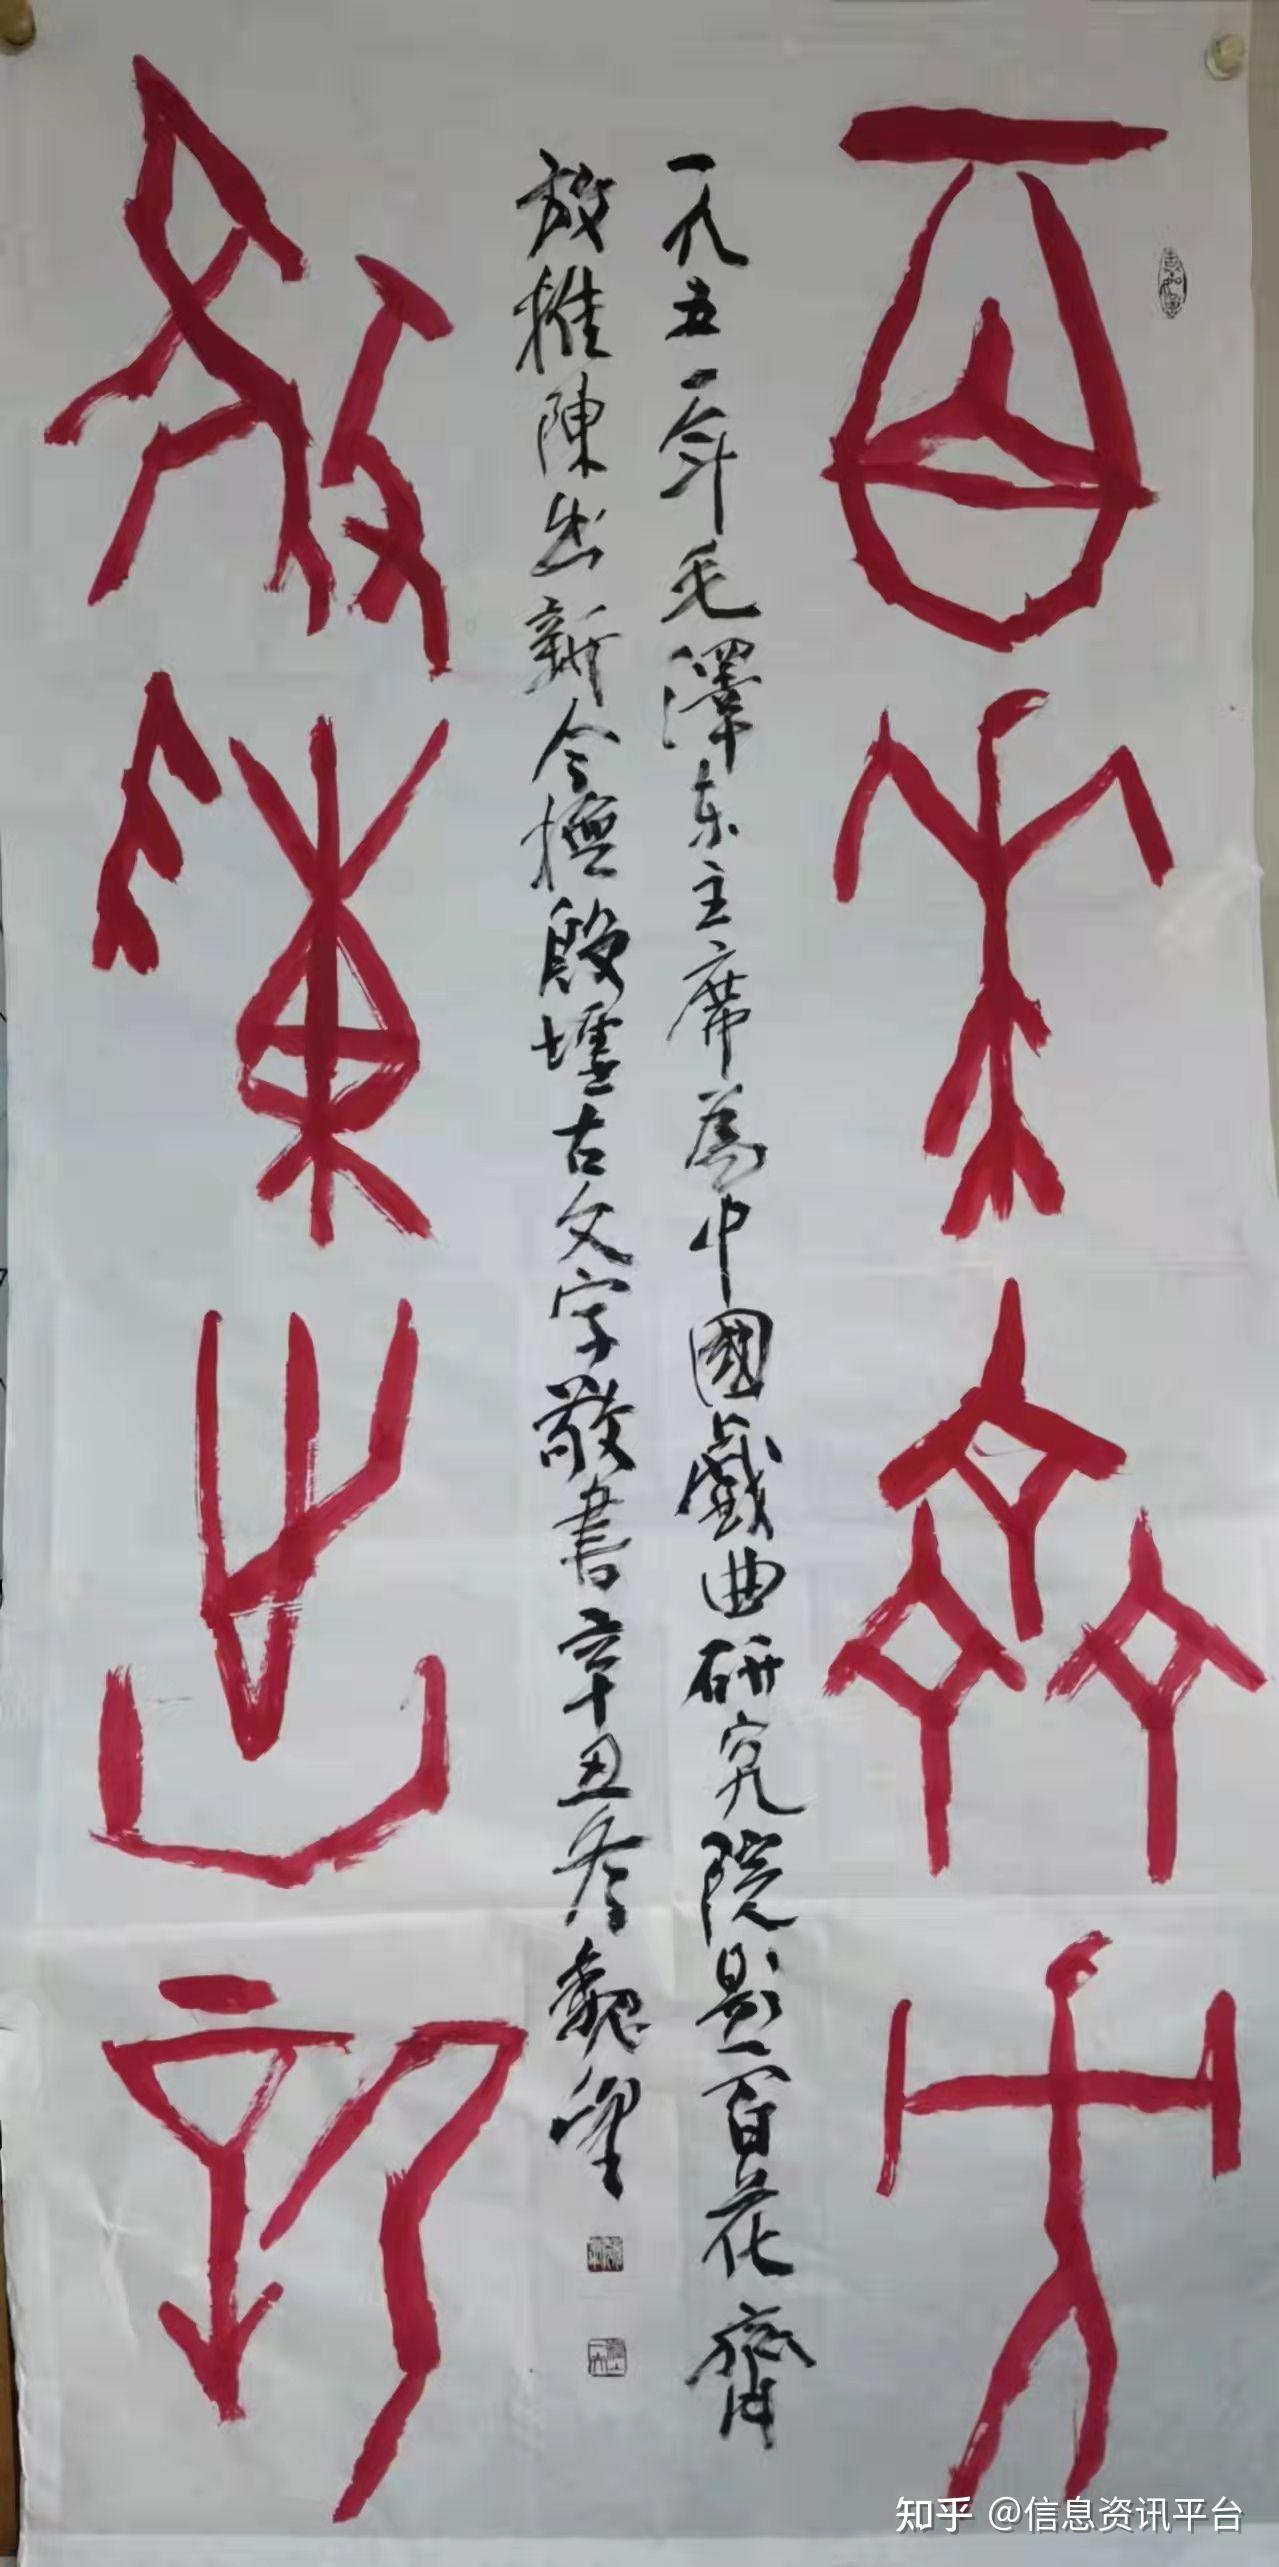 百花齊放
一九五一年毛澤东主席為中國戲曲研究院题百花齊
放推陳出新今撫殷墟古文字敬書辛丑冬魏
推陳出新
知乎 @信息资讯平台